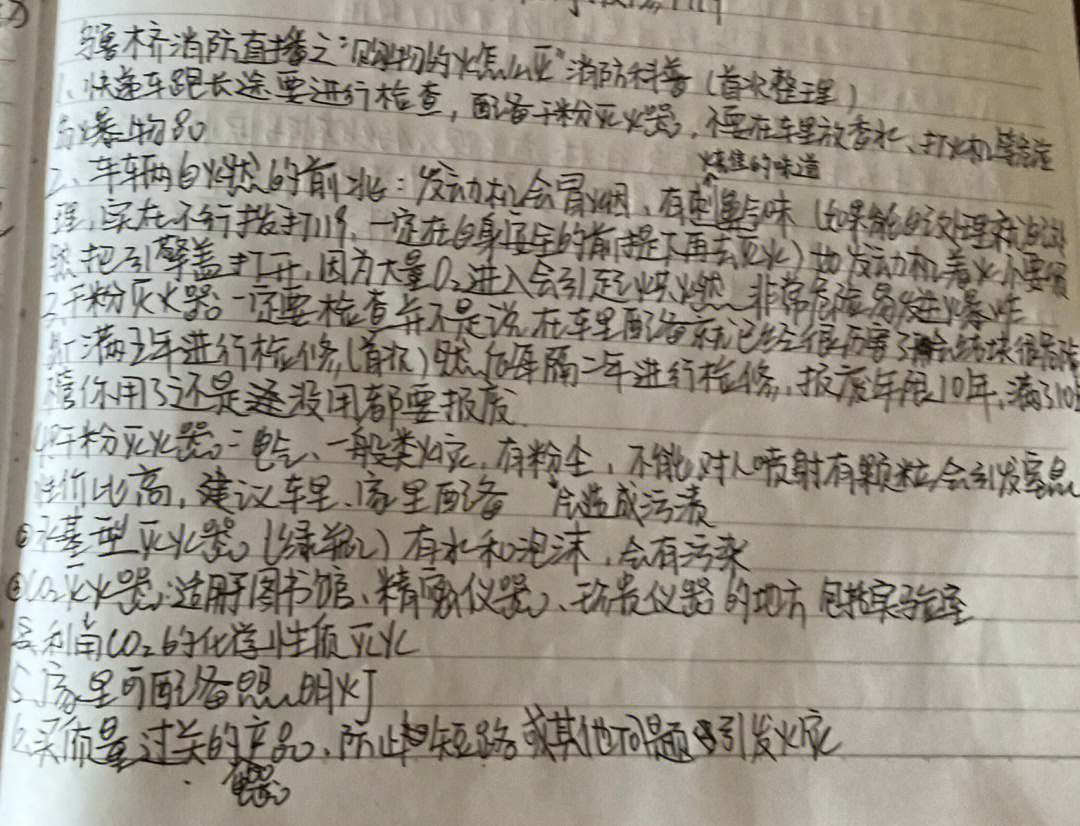 119
乌鲁木齐消防直播之"购物的火怎么灭"消防科普(首次整理)
1、快递车跟长途要进行检查,配备干粉灭火器,不要在车里放香水、打火机等易燃
易爆物品
烧焦的味道
2、车辆自燃的前兆:发动机会冒烟、有刺鼻气味(如果能的话处理
理,实在不行拨打119,一定在自身安全的前提下再去灭火)如发动机着火不要
然把引擎盖打开,因为大量O₂进入会引起燃烧 非常危险易发生爆炸
干粉灭火器一定要检查并不是说在车里配备就已经很厉害了 会结块很危险
满五年进行检修,(首次)然后每隔二年进行检修,报废年限10年,满了10年
不管你用了还是没用都要报废
干粉灭火器:电气、一般类火灾,有粉尘,不能对人喷射有颗粒会引发窒息
性价比高,建议车里、家里配备 会造成污渍
②水基型灭火器(绿瓶)有水和泡沫,会有污染
③CO₂灭火器:适用于图书馆、精密仪器、珍贵仪器的地方 包括实验室
是利用CO₂的化学性质灭火
5、家里可配备照明灯
6、买质量过关的产品,防止短路或其他问题引发火灾
电器